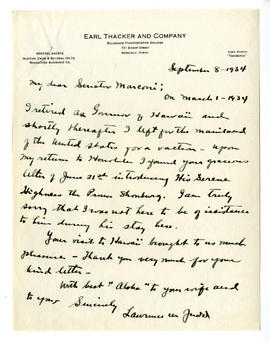 EARL THACKER AND COMPANY
DILLINGHAM TRANSPORTATION BUILDING
721 BISHOP STREET
HONOLULU, HAWAII
GENERAL AGENTS
SCOTTISH UNION & NATIONAL INS CO
MASSACHUSETTS ASSURANCE CO.
CABLE ADDRESS
September 8 - 1934
My dear Senator Marconi:
On March 1 - 1934
I retired as Governor of Hawaii and
shortly thereafter I left for the mainland
of the United States for a vacation - upon
my return to Honolulu I found your gracious
letter of June 21st introducing His Serene
Highness the Prince Ihonburg. I am truly
sorry that I was not here to be of assistance
to him during his stay here.
Your visit to Hawaii brought to us much
pleasure - Thank you very much for your
kind letter -
With best "Aloha" to your wife and
to you Sincerely
Lawrence M Judd